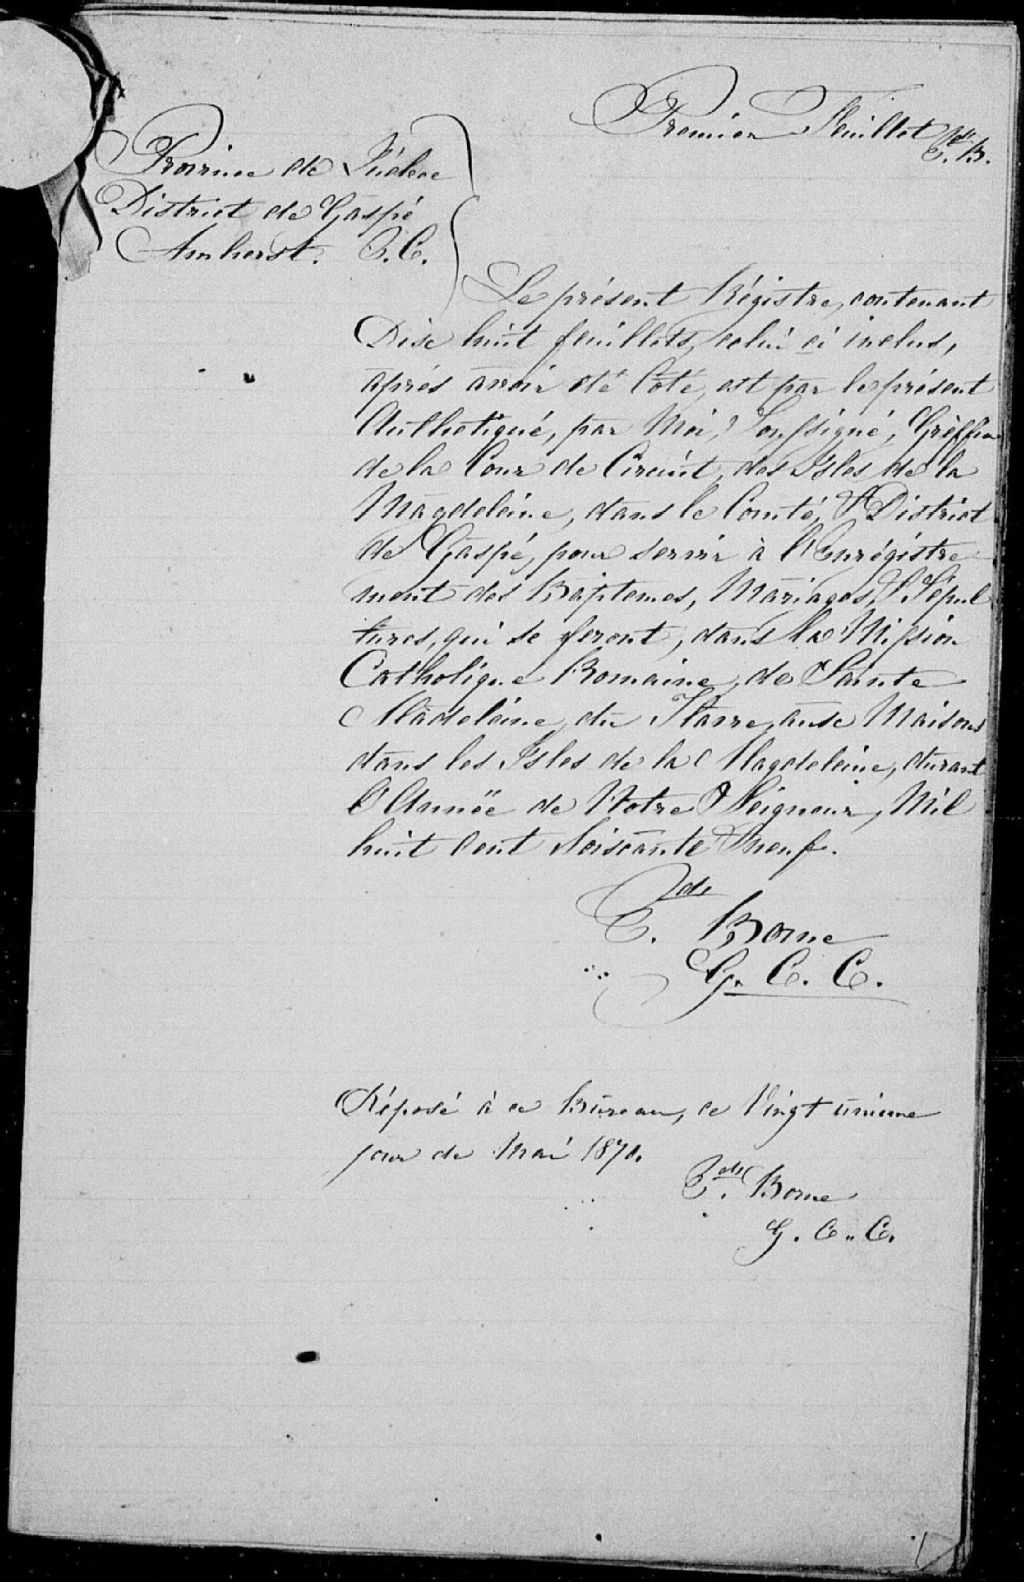 Premier Feuillet Ed. B.
Province de Québec
District de Gaspé
Amherst.
Le présent Régistre, contenant
Dixe huit feuillets, celui ci inclus,
après avoir été Coté, est par le présent
Authetiqué, par Moi, Soussigné, Greffier
de la Cour de Circuit, des Isles de la
Magdeleine, dans le Comté, & District
de Gaspé, pour servir à l'Enrégistre
ment des Baptemes, Mariages, & Sépul
tures, qui se feront, dans la Mission
Catholique Romaine, de Sainte
Madeleine, du Havre, aux Maisons
dans les Isles de la Magdeleine, durant
l'Année de Notre Seigneur, Mil
huit Cent Soixante & neuf.
Ed. Borne
G. C. C.
Déposé à ce Bureau, ce Vingt unieme
jour de Mai 1870.
Ed. Borne
G. C. C.